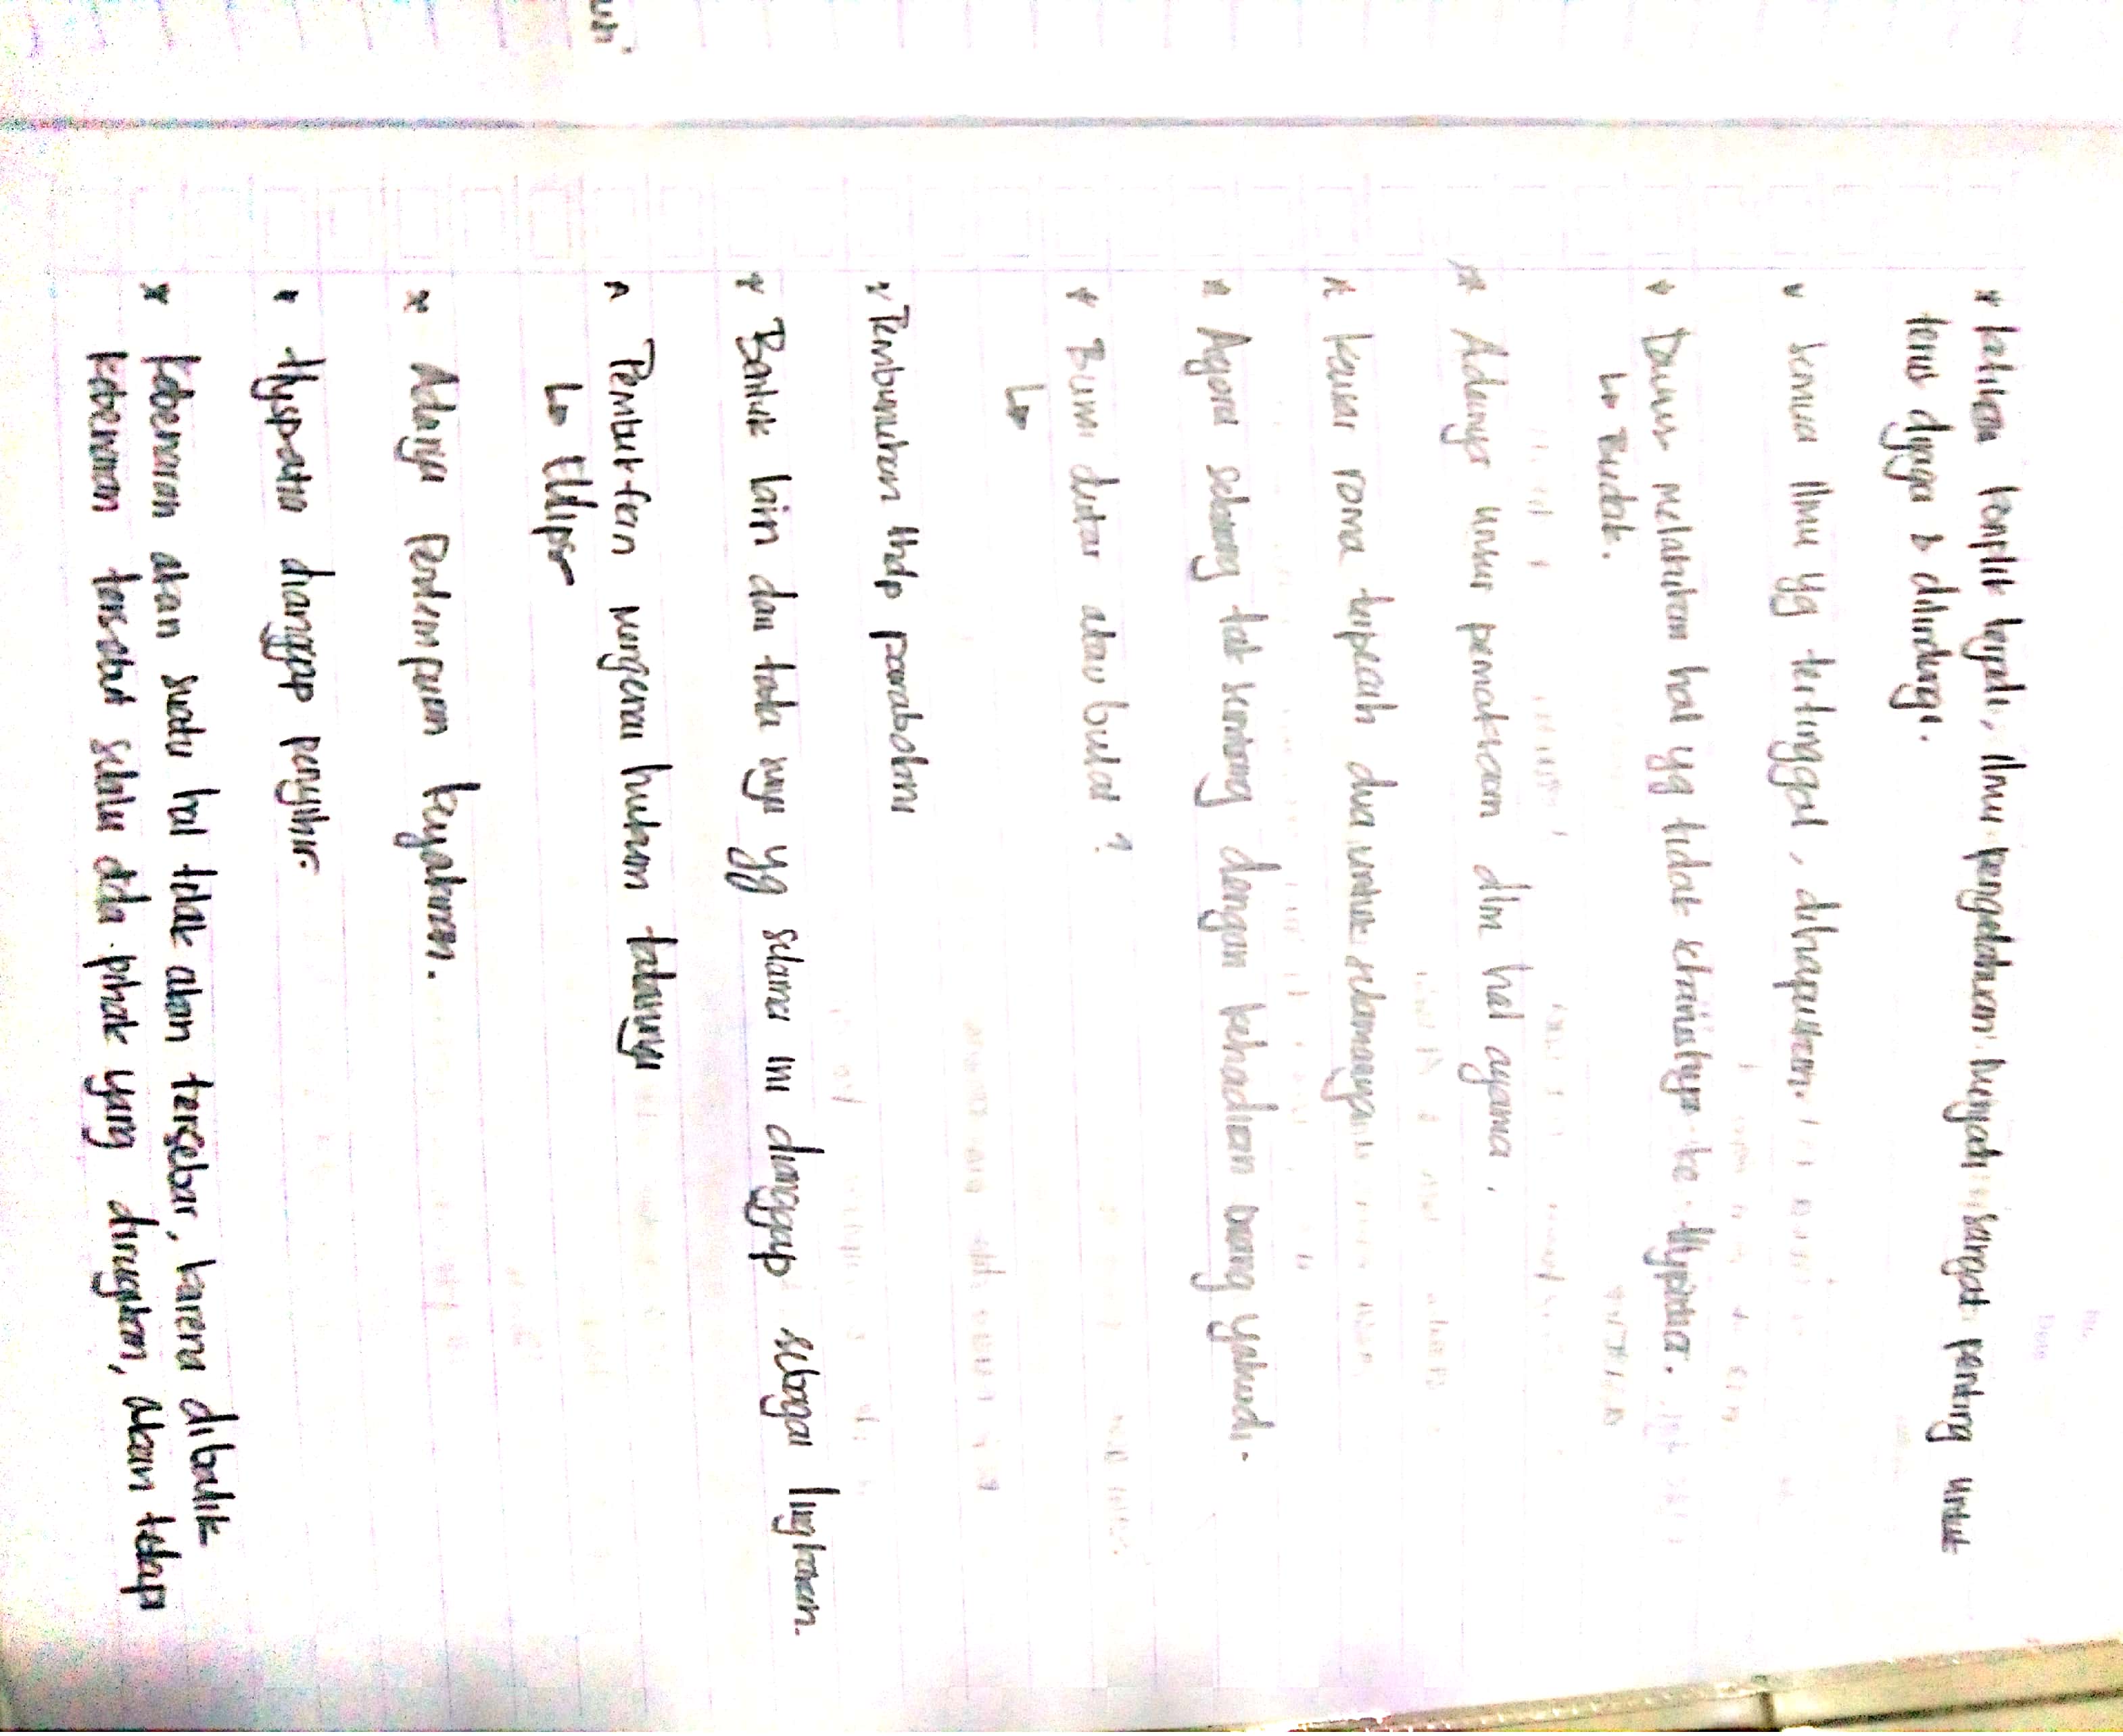 * Ketika konflik terjadi, ilmu pengetahuan menjadi sangat penting untuk
terus dijaga & dilindungi.
* Semua ilmu yg tertinggal, dihapuskan.
* Davus melakukan hal yg tidak seharusnya ke Hypatia.
↳ Budak.
* Adanya unsur pemaksaan dlm hal agama.
* Kaisar roma terpecah dua untuk selamanya
* Agora sekarang tak seimbang dengan kehadiran orang yahudi.
* Bumi datar atau bulat?
↳
* Pembunuhan thdp parabolani
* Bentuk lain dari tata surya yg selama ini dianggap sebagai lingkaran.
* Pembuktian mengenai hukum
↳ Ellips
* Adanya Penyimpan keyakinan.
* Hypatia dianggap penyihir.
* Kebenaran akan suatu hal tidak akan tersebar, karena dibalik
kebenaran tersebut selalu ada pihak yang dirugikan, akan tetap